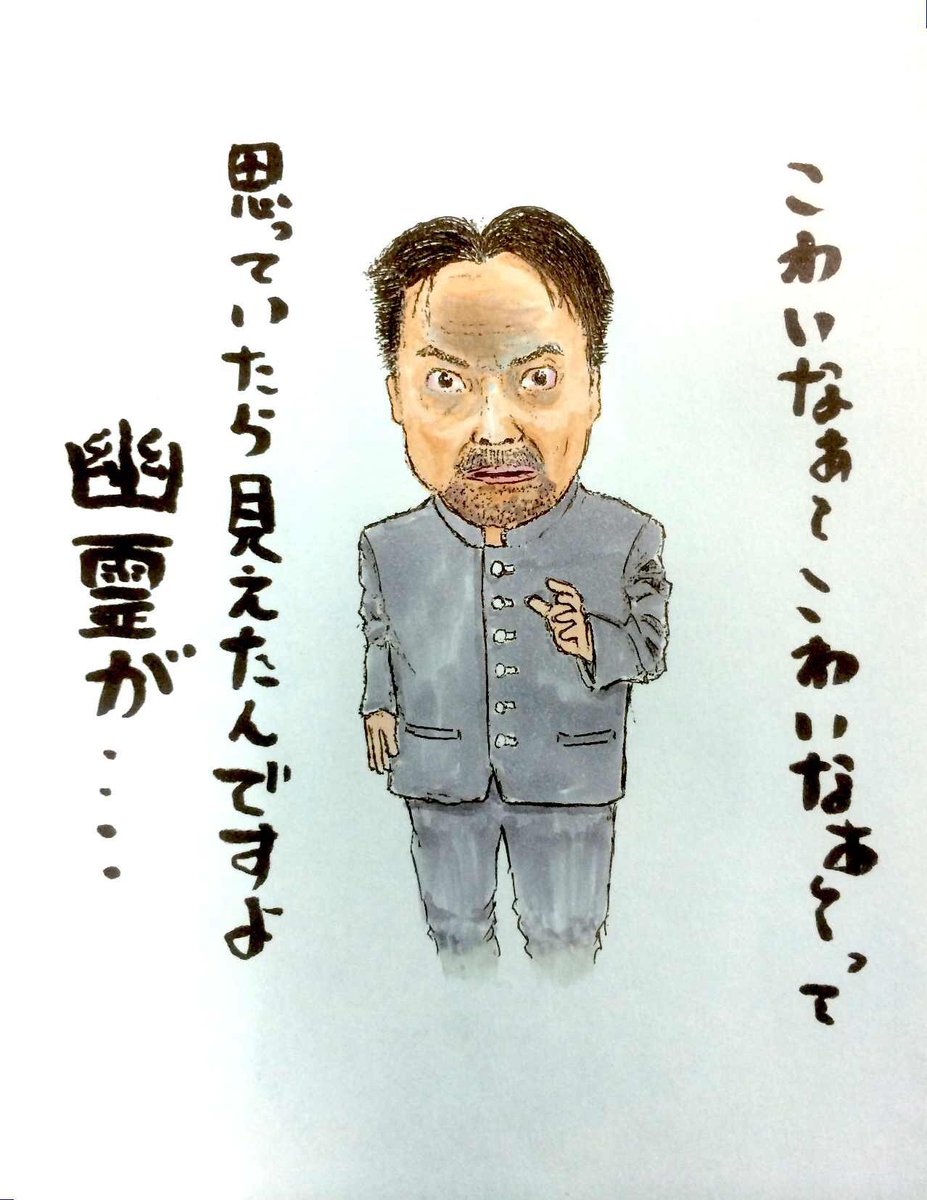 こわいなぁ〜こわいなあ〜って
思っていたら見えたんですよ
幽霊が....